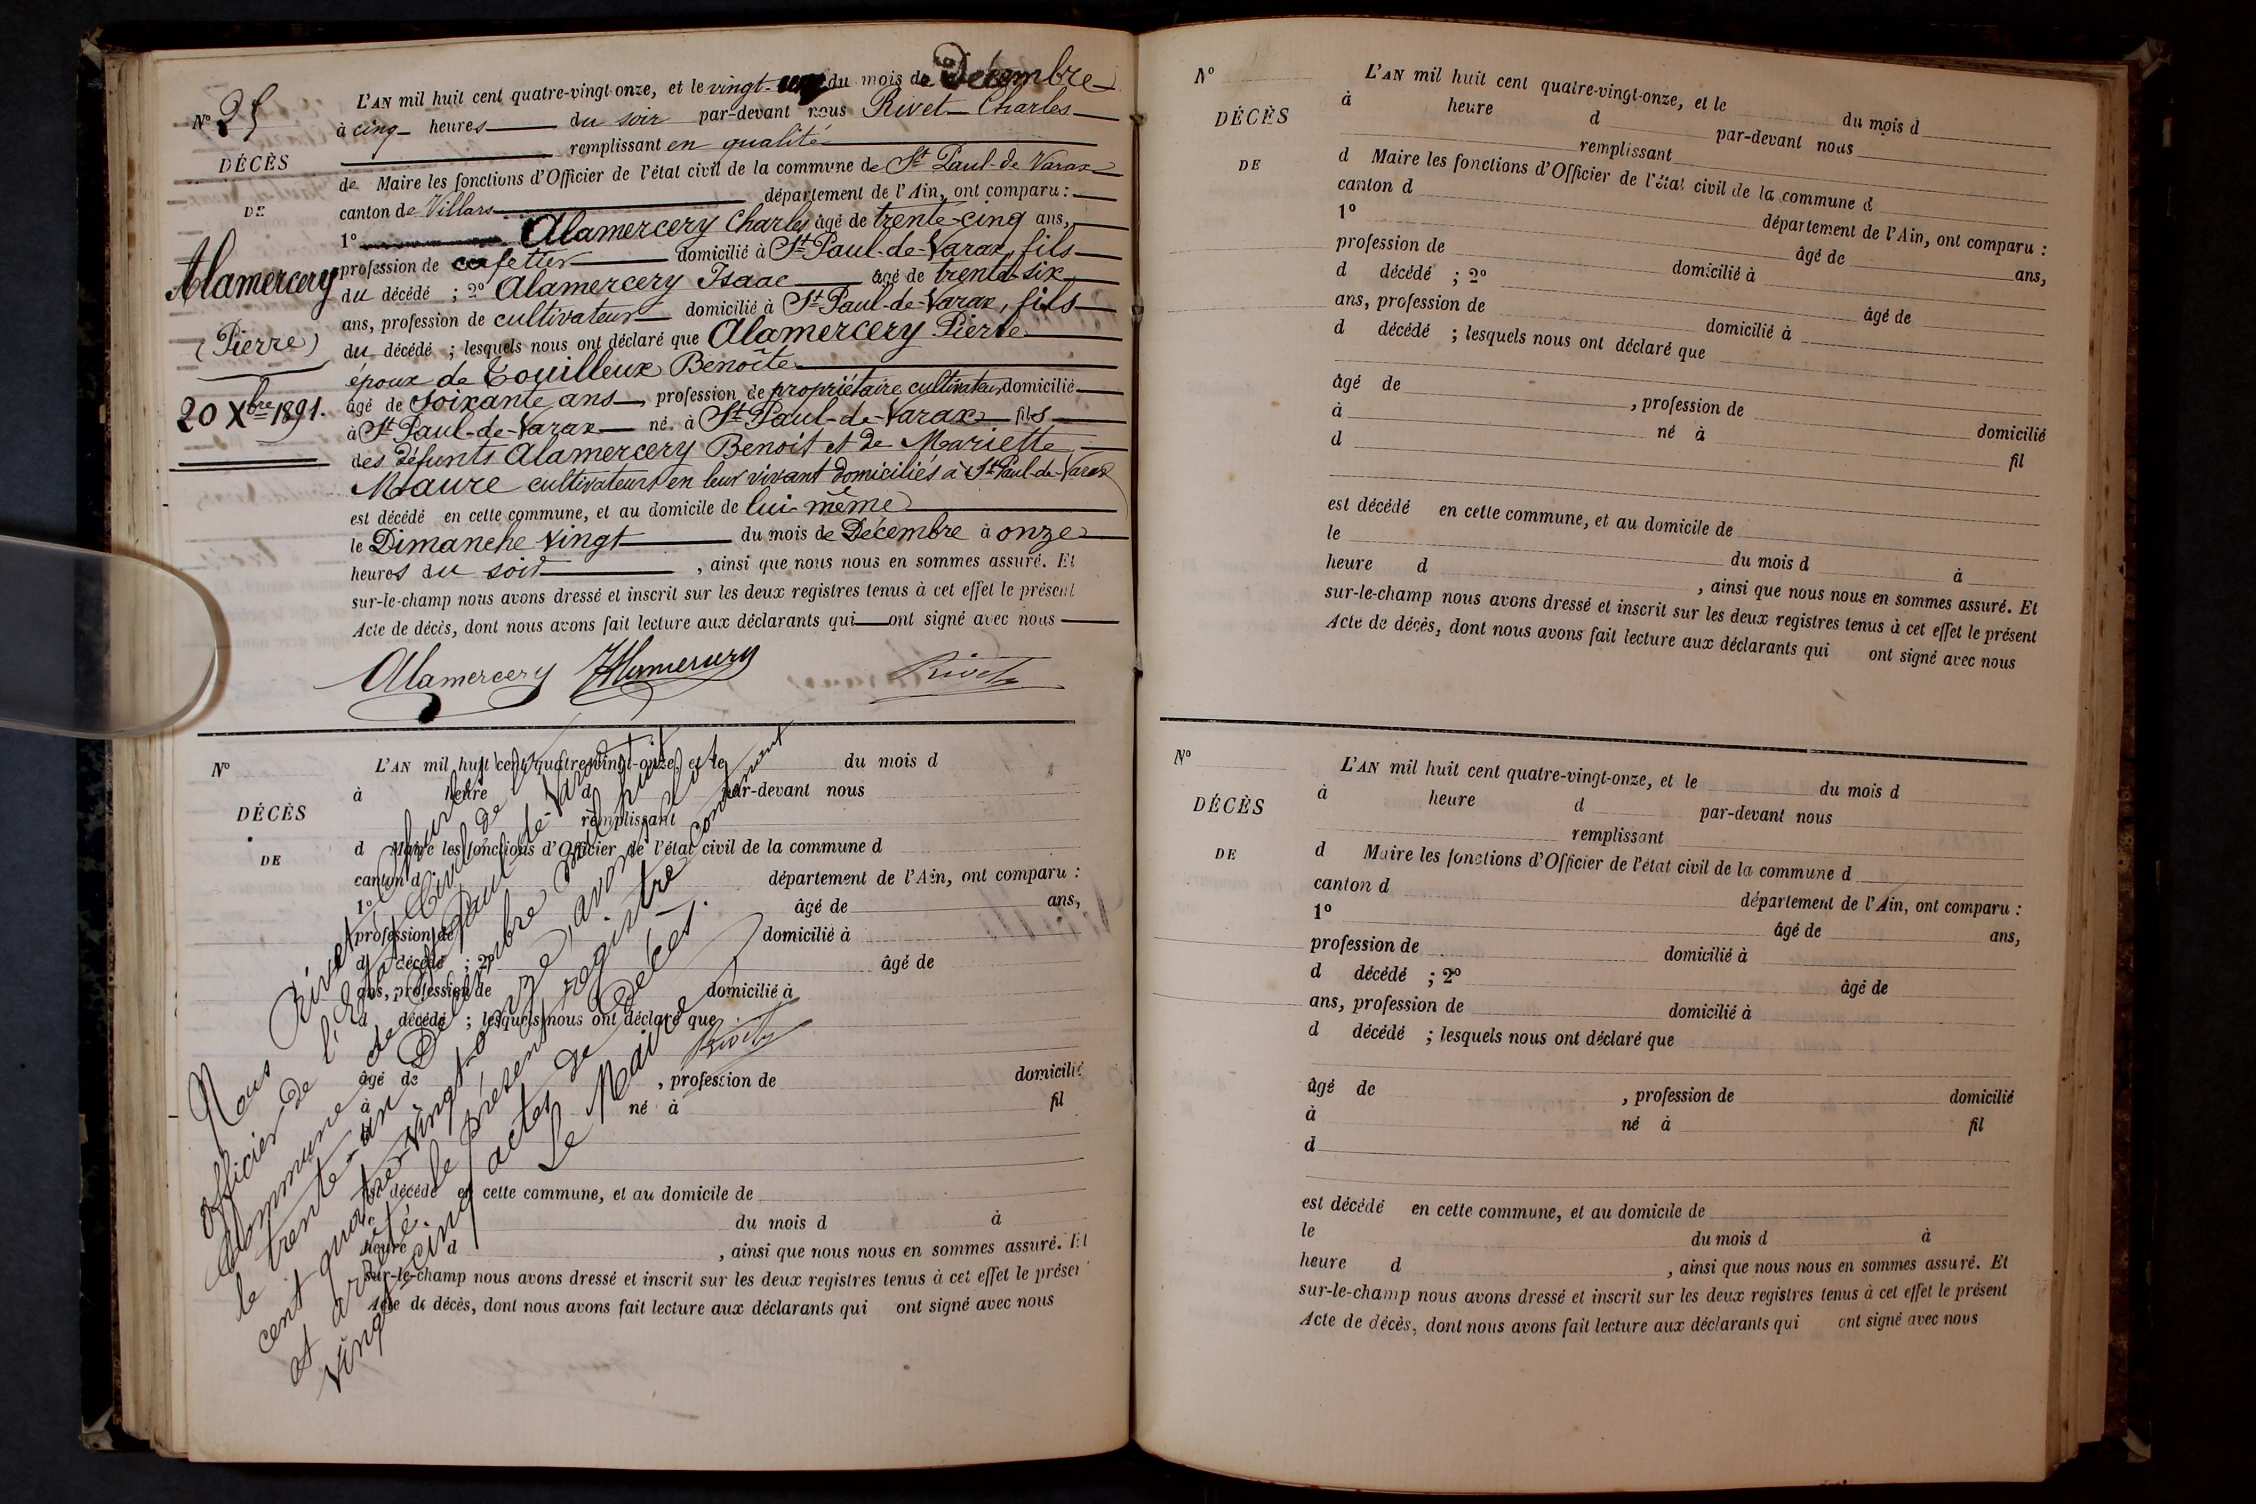 L'AN mil huit cent quatre-vingt-onze, et le vingt-un du mois de Décembre
N° 25
à cinq heures du soir par-devant nous Rivet Charles
remplissant en qualité
DÉCÈS
de Maire les fonctions d'Officier de l'état civil de la commune de St Paul-de-Varax
DE
canton de Villars département de l'Ain, ont comparu :
1° Alamercery Charles âgé de trente-cinq ans,
Alamercery
profession de cafetier domicilié à St Paul-de-Varax, fils
du décédé ; 2° Alamercery Isaac âgé de trente-six
ans, profession de cultivateur domicilié à St Paul-de-Varax, fils
(Pierre)
du décédé ; lesquels nous ont déclaré que Alamercery Pierre
époux de Couilleux Benoîte
20 Xbre 1891.
âgé de soixante ans, profession de propriétaire cultivateur domicilié
à St Paul-de-Varax né à St Paul-de-Varax fils
des défunts Alamercery Benoit et de Mariette
Maure cultivateurs en leur vivant domiciliés à St Paul-de-Varax
est décédé en cette commune, et au domicile de lui-même
le Dimanche vingt du mois de Décembre à onze
heures du soir, ainsi que nous nous en sommes assuré. Et
sur-le-champ nous avons dressé et inscrit sur les deux registres tenus à cet effet le présent
Acte de décès, dont nous avons fait lecture aux déclarants qui ont signé avec nous
Alamercery IAlamercery Rivet
N°
L'AN mil huit cent quatre-vingt-onze, et le du mois d
à heure d par-devant nous
DÉCÈS
remplissant
DE
d Maire les fonctions d'Officier de l'état civil de la commune d
canton d département de l'Ain, ont comparu :
1° âgé de ans,
profession de domicilié à
d décédé ; 2° âgé de
ans, profession de domicilié à
d décédé ; lesquels nous ont déclaré que
âgé de , profession de domicilié
à né à fil
est décédé en cette commune, et au domicile de
le du mois d à
heure d , ainsi que nous nous en sommes assuré. Et
sur-le-champ nous avons dressé et inscrit sur les deux registres tenus à cet effet le présen
Acte de décès, dont nous avons fait lecture aux déclarants qui ont signé avec nous
Nous Rivet Charles
officier de l'Etat Civil de la
Commune de St Paul-de-Varax,
le trente-un Décembre mil huit
cent quatre-vingt-onze, avons clos
et arrêté le présent registre contenant
vingt-cinq actes de Décès.
Le Maire
Rivet
N°
L'AN mil huit cent quatre-vingt-onze, et le du mois d
DÉCÈS
à heure d par-devant nous
remplissant
DE
d Maire les fonctions d'Officier de l'état civil de la commune d
canton d département de l'Ain, ont comparu :
1° âgé de ans,
profession de domicilié à
d décédé ; 2° âgé de
ans, profession de domicilié à
d décédé ; lesquels nous ont déclaré que
âgé de , profession de domicilié
à né à fil
d
est décédé en cette commune, et au domicile de
le du mois d à
heure d , ainsi que nous nous en sommes assuré. Et
sur-le-champ nous avons dressé et inscrit sur les deux registres tenus à cet effet le présent
Acte de décès, dont nous avons fait lecture aux déclarants qui ont signé avec nous
N°
L'AN mil huit cent quatre-vingt-onze, et le du mois d
DÉCÈS
à heure d par-devant nous
remplissant
DE
d Maire les fonctions d'Officier de l'état civil de la commune d
canton d département de l'Ain, ont comparu :
1° âgé de ans,
profession de domicilié à
d décédé ; 2° âgé de
ans, profession de domicilié à
d décédé ; lesquels nous ont déclaré que
âgé de , profession de domicilié
à né à fil
d
est décédé en cette commune, et au domicile de
le du mois d à
heure d , ainsi que nous nous en sommes assuré. Et
sur-le-champ nous avons dressé et inscrit sur les deux registres tenus à cet effet le présent
Acte de décès, dont nous avons fait lecture aux déclarants qui ont signé avec nous